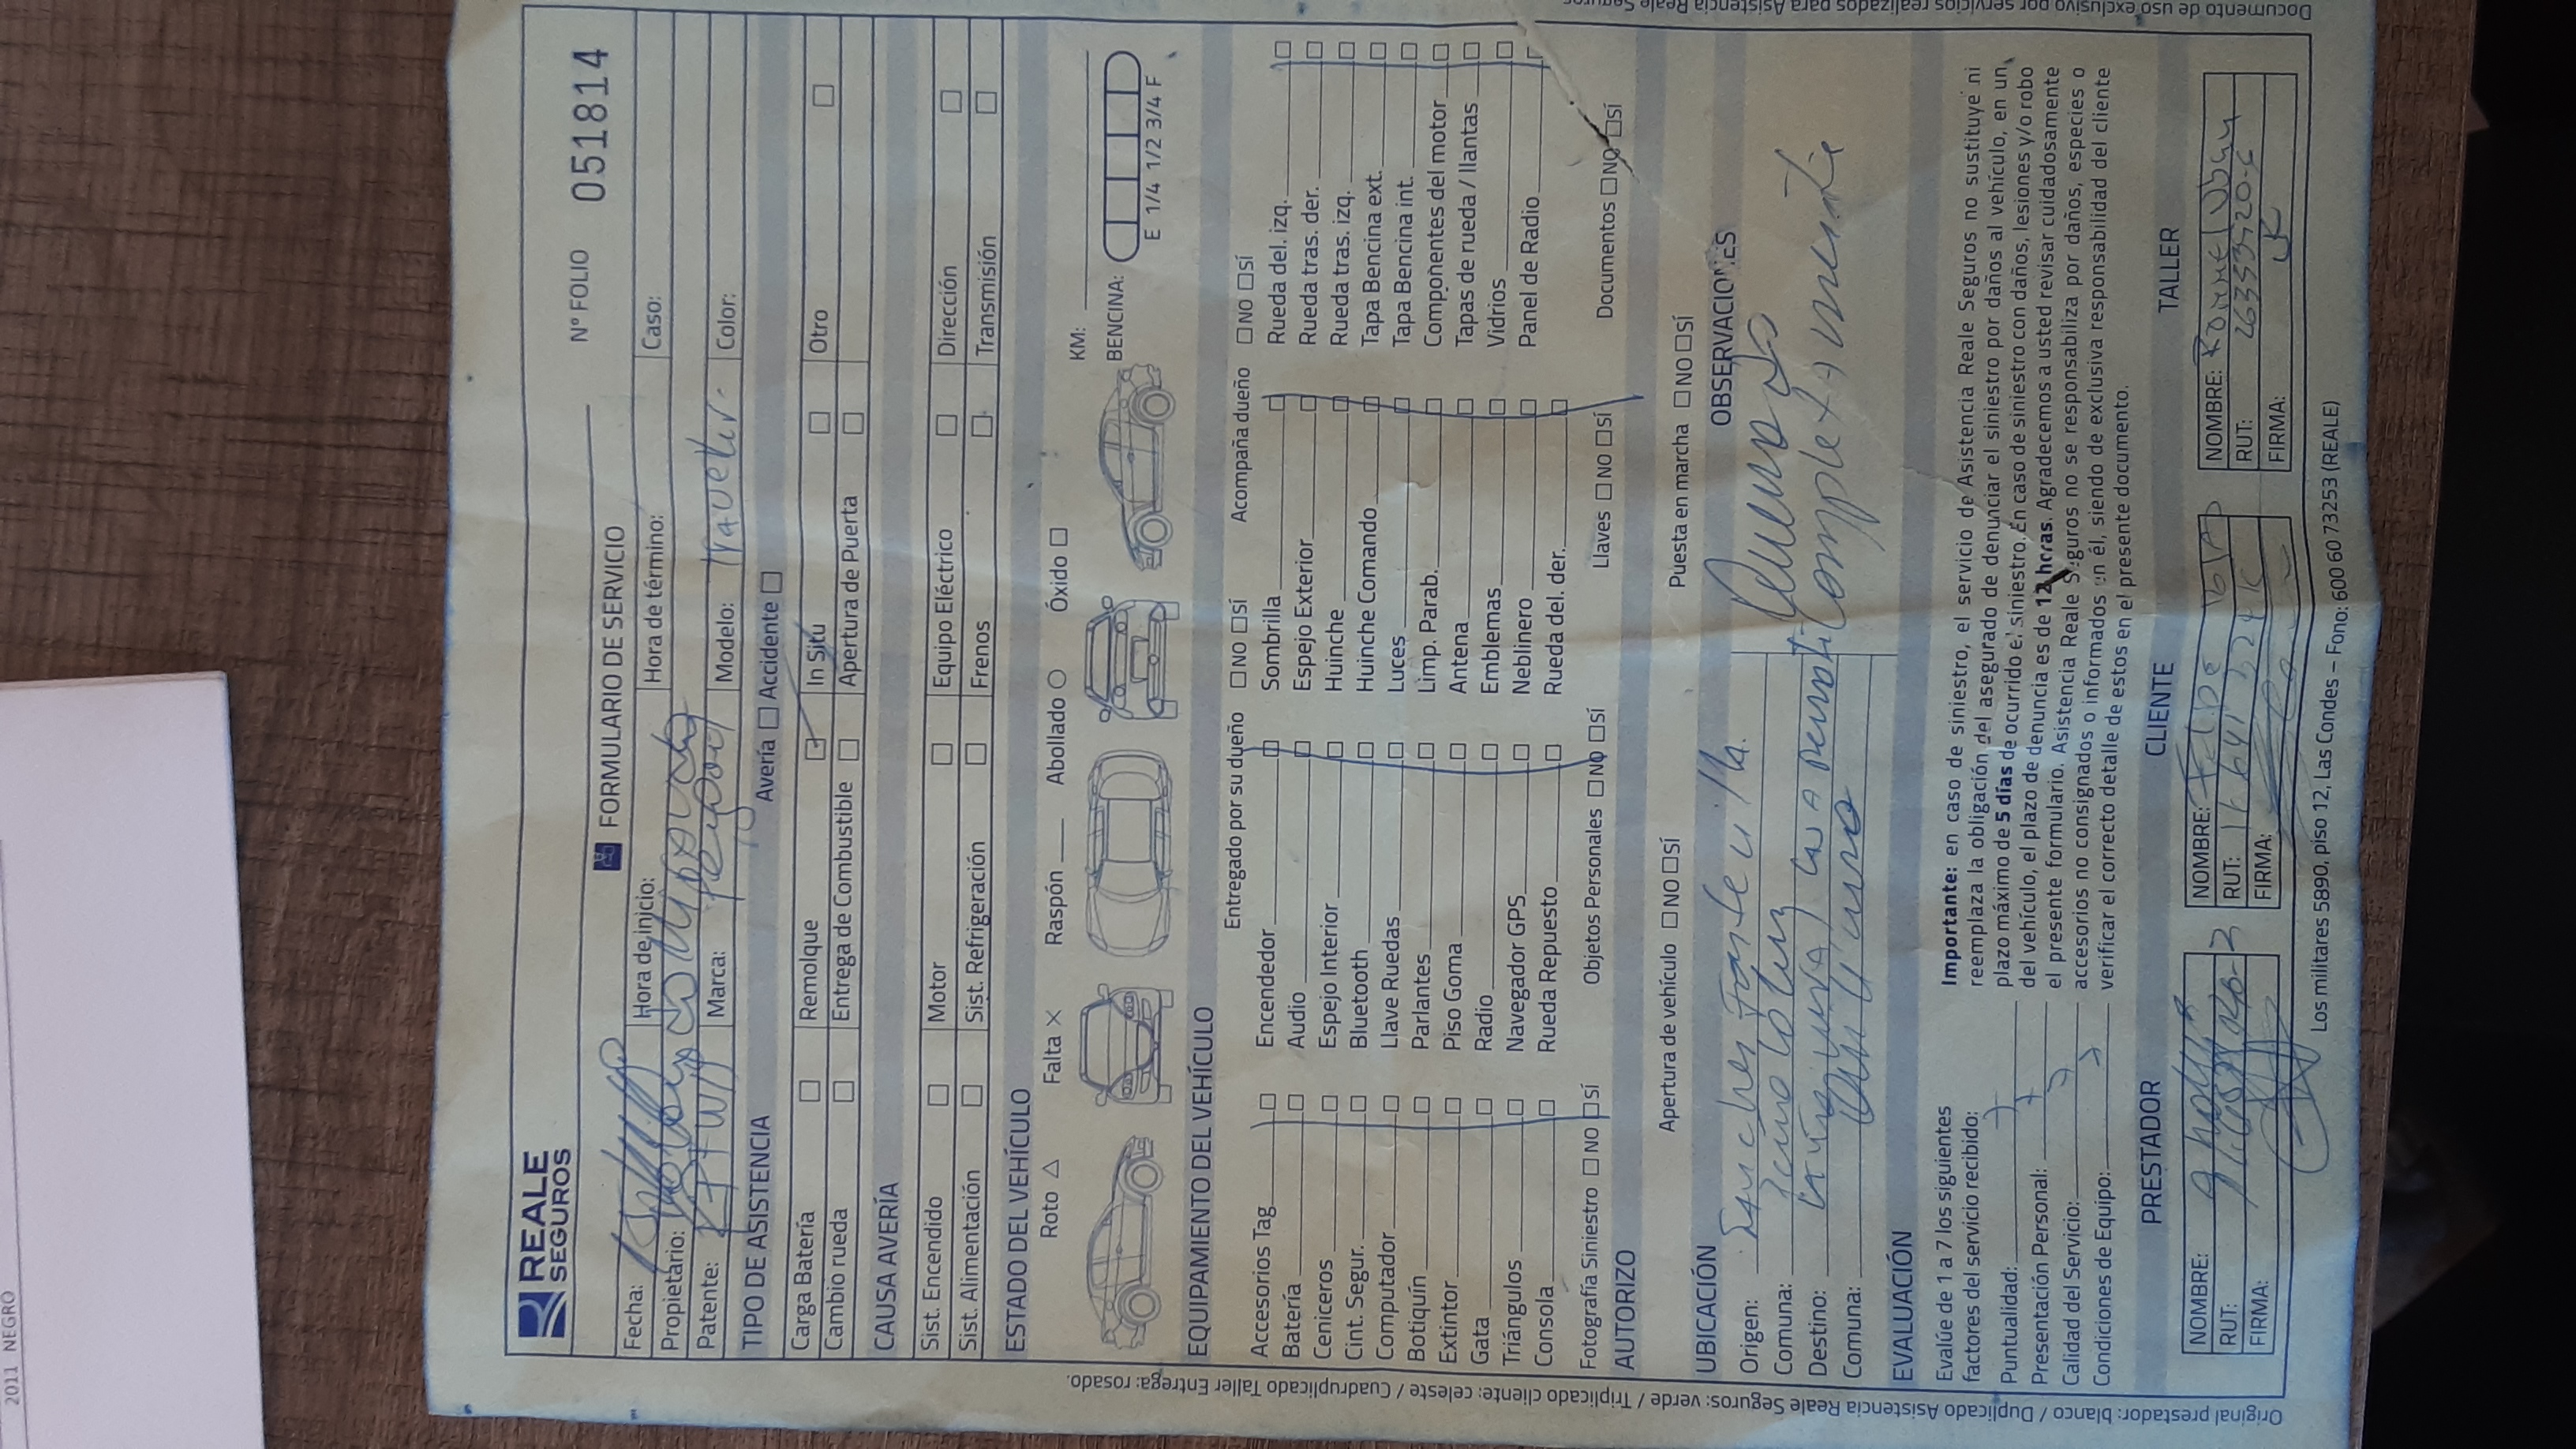 2011 NEGRO
REALE
SEGUROS
FORMULARIO DE SERVICIO
N° FOLIO 051814
Fecha:
Hora de inicio:
Hora de término:
Caso:
Propietario:
Patente:
Marca:
Modelo:
Color:
TIPO DE ASISTENCIA
Avería ☐ Accidente ☐
Carga Batería ☐ Remolque ☐ In Situ ☐ Otro ☐
Cambio rueda ☐ Entrega de Combustible ☐ Apertura de Puerta ☐
CAUSA AVERÍA
Sist. Encendido ☐ Motor ☐ Equipo Eléctrico ☐ Dirección ☐
Sist. Alimentación ☐ Sist. Refrigeración ☐ Frenos ☐ Transmisión ☐
ESTADO DEL VEHÍCULO
Roto △ Falta ✕ Raspón __ Abollado ○ Óxido ☐
KM:
BENCINA:
E 1/4 1/2 3/4 F
EQUIPAMIENTO DEL VEHÍCULO
Entregado por su dueño ☐ NO ☐ SÍ Acompaña dueño ☐ NO ☐ SÍ
Accesorios Tag ☐ Encendedor ☐ Sombrilla ☐ Rueda del. izq. ☐
Batería ☐ Audio ☐ Espejo Exterior ☐ Rueda tras. der. ☐
Ceniceros ☐ Espejo Interior ☐ Huinche ☐ Rueda tras. izq. ☐
Cint. Segur. ☐ Bluetooth ☐ Huinche Comando ☐ Tapa Bencina ext. ☐
Computador ☐ Llave Ruedas ☐ Luces ☐ Tapa Bencina int. ☐
Botiquín ☐ Parlantes ☐ Limp. Parab. ☐ Componentes del motor ☐
Extintor ☐ Piso Goma ☐ Antena ☐ Tapas de rueda / llantas ☐
Gata ☐ Radio ☐ Emblemas ☐ Vidrios ☐
Triángulos ☐ Navegador GPS ☐ Neblinero ☐ Panel de Radio ☐
Consola ☐ Rueda Repuesto ☐ Rueda del. der. ☐
Fotografía Siniestro ☐ NO ☐ SÍ Objetos Personales ☐ NO ☐ SÍ Llaves ☐ NO ☐ SÍ Documentos ☐ NO ☐ SÍ
AUTORIZO
Apertura de vehículo ☐ NO ☐ SÍ Puesta en marcha ☐ NO ☐ SÍ
UBICACIÓN
OBSERVACIONES
Origen:
Comuna:
Destino:
Comuna:
Completamente
EVALUACIÓN
Evalúe de 1 a 7 los siguientes
factores del servicio recibido:
Puntualidad: 7
Presentación Personal: 7
Calidad del Servicio: 7
Condiciones de Equipo: 7
Importante: en caso de siniestro, el servicio de Asistencia Reale Seguros no sustituye ni
reemplaza la obligación del asegurado de denunciar el siniestro por daños al vehículo, en un
plazo máximo de 5 días de ocurrido el siniestro. En caso de siniestro con daños, lesiones y/o robo
del vehículo, el plazo de denuncia es de 12 horas. Agradecemos a usted revisar cuidadosamente
el presente formulario. Asistencia Reale Seguros no se responsabiliza por daños, especies o
accesorios no consignados o informados en él, siendo de exclusiva responsabilidad del cliente
verificar el correcto detalle de estos en el presente documento.
PRESTADOR
CLIENTE
TALLER
NOMBRE:
RUT:
FIRMA:
NOMBRE: Felipe
RUT:
FIRMA:
NOMBRE:
RUT:
FIRMA:
Los militares 5890, piso 12, Las Condes – Fono: 600 60 73253 (REALE)
Original prestador: blanco / Duplicado Asistencia Reale Seguros: verde / Triplicado cliente: celeste / Cuadruplicado Taller Entrega: rosado.
Documento de uso exclusivo por servicios realizados para Asistencia Reale Seguros